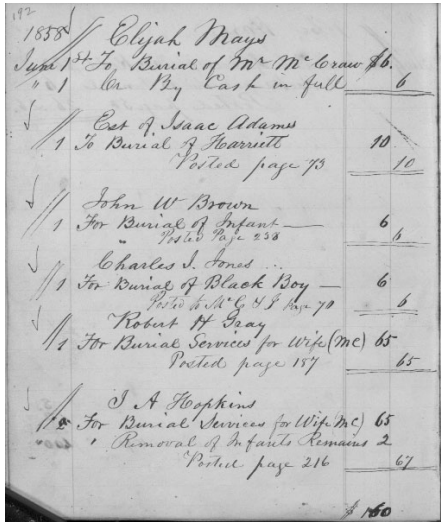 192
1858 Elijah Mays
June 1st To Burial of Mr McCraw $6.
" 1 Cr By Cash in full 6
Est of Isaac Adams
1 To Burial of Harriett 10
Posted page 73 10
John W Brown
1 For Burial of Infant — 6
" Posted Page 238 6
Charles I. Jones
1 For Burial of Black Boy — 6
Posted to Mc & J Page 70 6
Robert H Gray
1 For Burial Services for Wife (MC) 65
Posted page 187 65
J A Hopkins
2 For Burial Services for Wife MC) 65
" Removal of Infants Remains 2
Posted page 216 67
$ 160